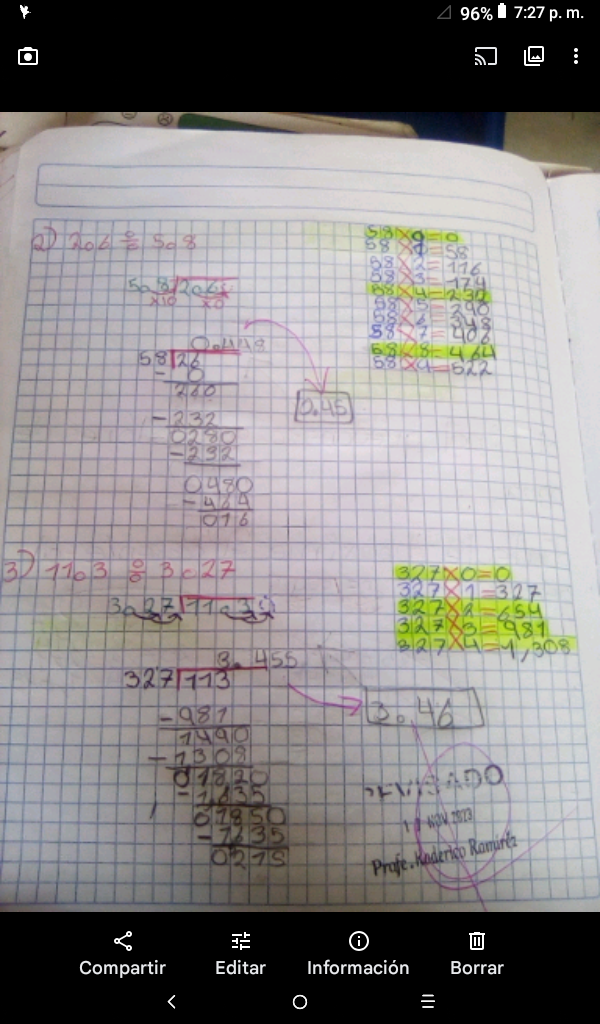 96% 7:27 p. m.
2) 2.6 ÷ 5.8
58 X 0 = 0
58 X 1 = 58
58 X 2 = 116
58 X 3 = 174
58 X 4 = 232
58 X 5 = 290
58 X 6 = 348
58 X 7 = 406
58 X 8 = 464
58 X 9 = 522
5.8 2.6
x10 x0
0.448
58 26
- 0
260
- 232
0280
- 232
0480
- 464
016
0.45
3) 11.3 ÷ 3.27
327 X 0 = 0
327 X 1 = 327
327 X 2 = 654
327 X 3 = 981
327 X 4 = 1,308
3.27 11.30
3.455
327 113
- 981
1490
- 1308
01820
- 1635
01850
- 1635
0215
3.46
REVISADO
NOV 2023
Profe. Roderico Ramírez
Compartir
Editar
Información
Borrar